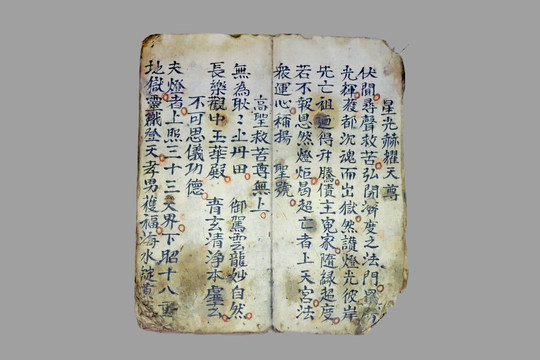 星光赫耀天尊
伏聞尋聲救苦弘開濟度之法門
光輝夜都沉魂而出獄然謢燈光彼岸
先亡祖迴得升騰債主冤家隨緣超度
若不報恩然燈炬曷超亡者上天宮法
衆運心稱揚 聖號
高聖救苦尊無上
無為耿〻上丹田 御駕雲龍妙自然
長樂觀中玉華殿 青玄清淨本虛
不可思儀功德
夫燈者上照三十三天界下照十八重
地獄靈 登天孝男獲福海水淀黃